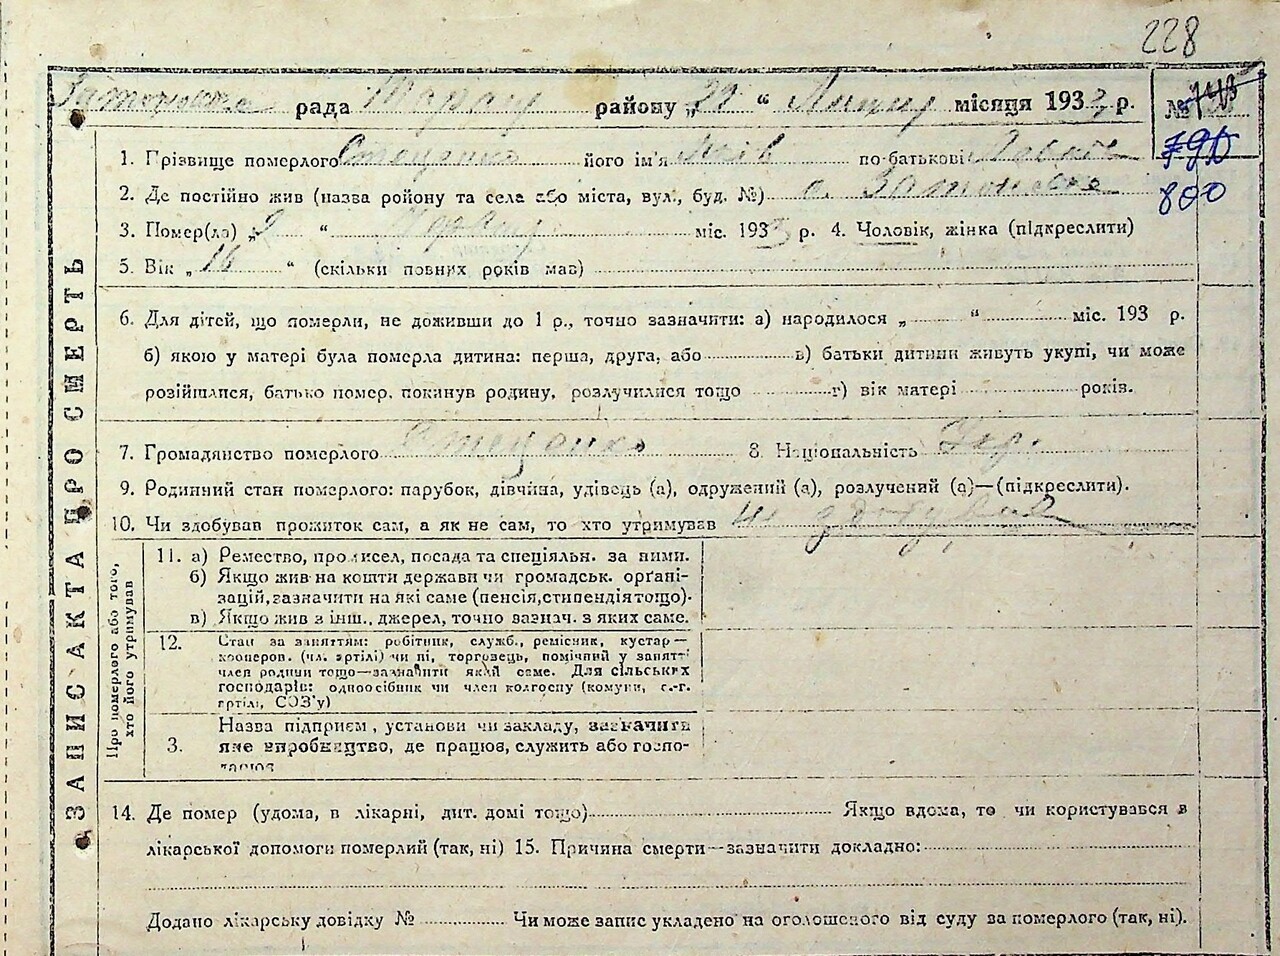 228
рада району „22“ Липця місяця 1933 р. №
790
1. Грізвище померлого Стеценко його ім'я Яків по-батькові
800
2. Де постійно жив (назваройону та села або міста, вул., буд. №) с.
3. Помер(ла) „2 “ Червня міс. 1933 р. 4. Чоловік, жінка (підкреслити)
5. Вік „ 16 “ (скільки повних років мав)
6. Для дітей, що померли, не доживши до 1 р., точно зазначити: а) народилося „ “ міс. 193 р.
б) якою у матері була померла дитина: перша, друга, або в) батьки дитини живуть укупі, чи може
розійшлися, батько помер, покинув родину, розлучилися тощо г) вік матері років.
7. Громадянство померлого Стеценко 8. Національність Укр.
9. Родинний стан померлого: парубок, дівчина, удівець (а), одружений (а), розлучений (а)—(підкреслити).
10. Чи здобував прожиток сам, а як не сам, то хто утримував не
ЗАПИС АКТА ПРО СМЕРТЬ
Про померлого або того, хто його утримував
11. а) Ремество, промисел, посада та спеціяльн. за ними.
б) Якщо жив на кошти держави чи громадськ. орґані-
зацій, зазначити на які саме (пенсія, стипендія тощо).
в) Якщо жив з інш. джерел, точно зазнач. з яких саме.
12. Стан за заняттям: робітник, служб., ремісник, кустар—
кооперов. (чл. артілі) чи ні, торговець, помічний у занятті
член родини тощо—зазначити який саме. Для сільських
господарів: одноосібник чи член колгоспу (комуни, с.-г.
артілі, СОЗ'у)
Назва підприєм., установи чи закладу, зазначити
3. яке виробництво, де працює, служить або госпо-
14. Де помер (удома, в лікарні, дит. домі тощо) Якщо вдома, то чи користувався в
лікарської допомоги померлий (так, ні) 15. Причина смерти—зазначити докладно:
Додано лікарську довідку № Чи може запис укладено на оголошеного від суду за померлого (так, ні).